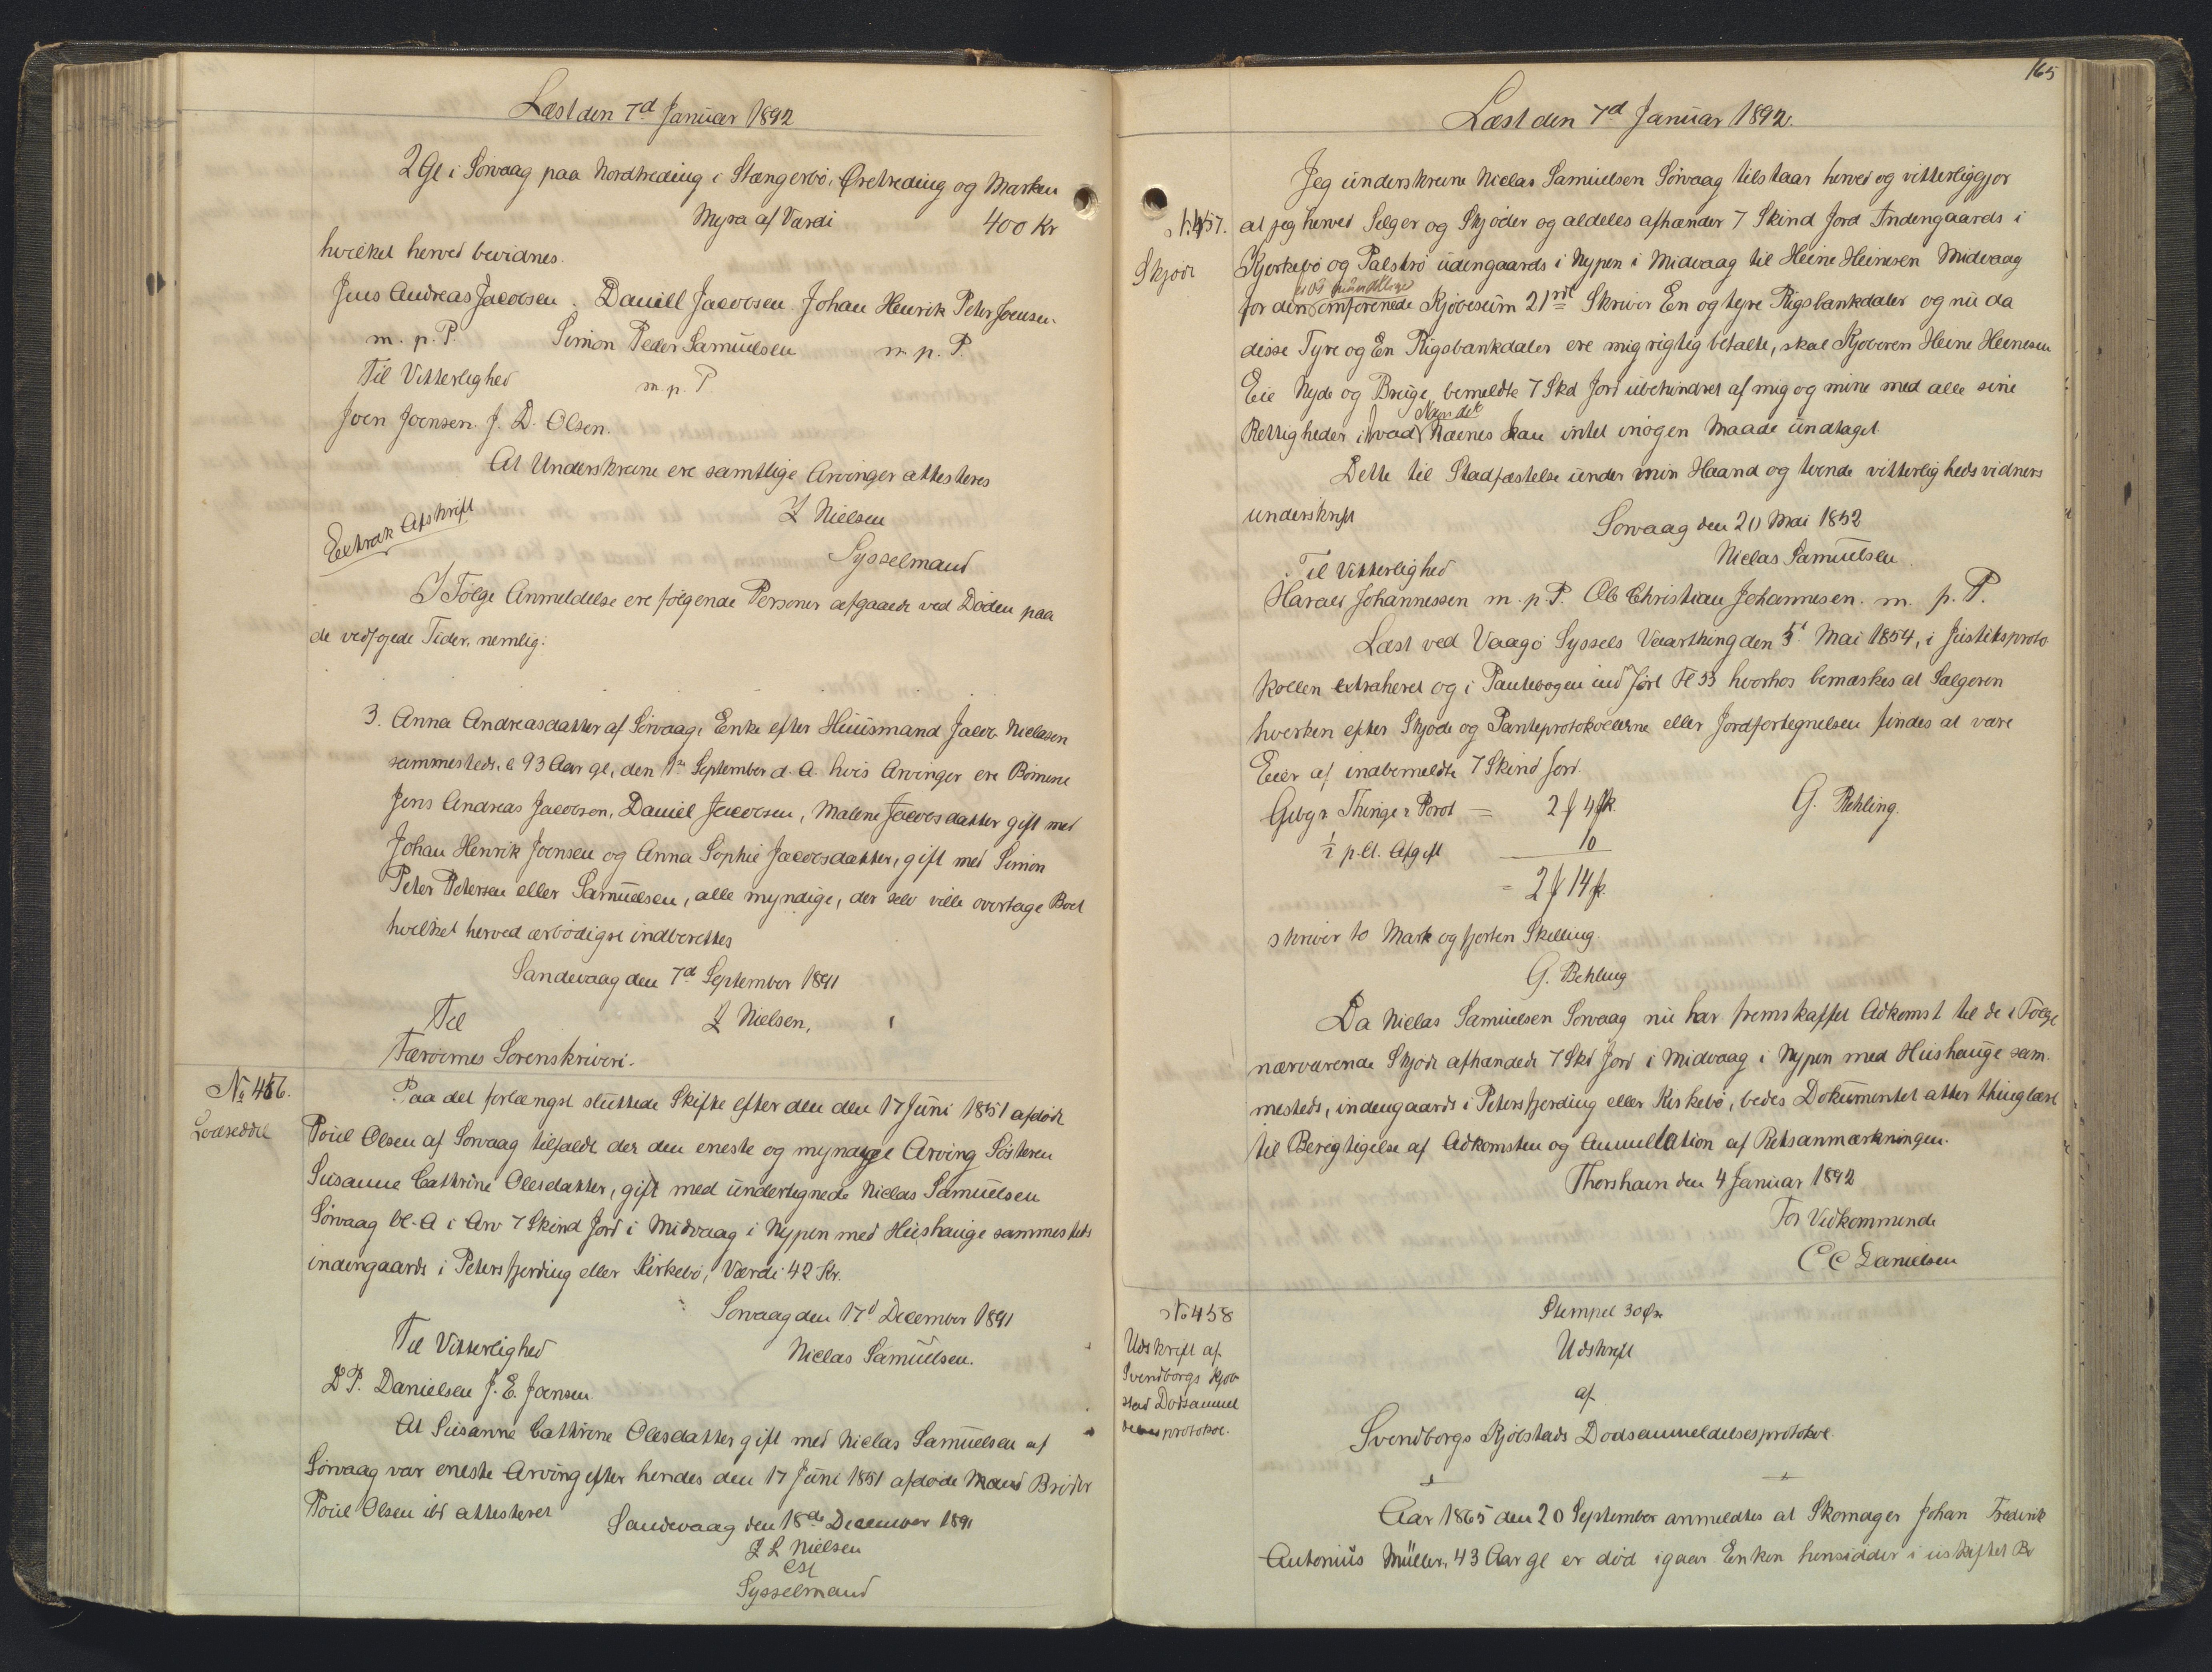 Læst den 7d Januar 1892
2 Gl i Sørvaag paa Nordtreding i Stængerbø, Øretreding og Marken
Myra af Værdi 400 Kr
hvilket herved bevidnes.
Jens Andreas Jacobsen. Daniell Jacobsen. Johan Henrik Peter Joensen.
m. p. P. Simon Peder Samuelsen m. p. P.
Til Vitterlighed m. p. P
Joen Joensen. J. D. Olsen.
At Underskrevne ere samtlige Arvinger attesteres
Z Nielsen
Sysselmand
Extrak Afskrift
I Følge Anmeldelse ere følgende Personer afgaaede ved Døden paa
de vedføjede Tider, nemlig:
3. Anna Andreasdatter af Sørvaag, Enke efter Huusmand Jacob Niclasen
sammesteds, c 93 Aar gl, den 1ste September d. A. hvis Arvinger ere Børnene
Jens Andreas Jacobsen, Daniel Jacobsen, Malene Jacobsdatter gift med
Johan Henrik Joensen og Anna Sophie Jacobsdatter, gift med Simon
Peter Petersen eller Samuelsen, alle myndige, der selv ville overtage Boet
hvilket herved ærbødigst indberettes
Sandevaag den 7d September 1891
Til Z Nielsen,
Færøernes Sorenskriveri.
No 456.
Lodseddel
Paa det forlængst sluttede Skifte efter den den 17 Juni 1851 afdøde
Poul Olsen af Sørvaag tilfaldt der den eneste og myndige Arving Søsteren
Susanne Cathrine Olesdatter, gift med undertegnede Niclas Samuelsen
Sørvaag bl. A i Arv 7 Skind Jord i Midvaag i Nypen med Hushauge sammesteds
indengaards i Petersfjerding eller Kirkebø, Værdi 42 Kr.
Sørvaag den 17d December 1891
Til Vitterlighed Niclas Samuelsen.
D P. Danielsen J. E. Joensen
At Susanne Cathrine Olesdatter gift med Niclas Samuelsen af
Sørvaag var eneste Arving efter hendes den 17 Juni 1851 afdøde Mand Broder
Poul Olsen ibd attesteres
Sandevaag den 18de December 1891
Z L Nielsen
cst
Sysselmand
165
Læst den 7d Januar 1892.
No 457.
Skjøde
Jeg underskrevne Niclas Samuelsen Sørvaag tilstaar herved og vitterliggjør
at jeg herved Sælger og Skjøder og aldeles afhænder 7 Skind Jord Indengaards i
Kjerkebø og Palstrø udengaards i Nypen i Midvaag til Heine Heinesen Midvaag
os mundtlige
for den omforenede Kjøbesum 21 rdl Skriver En og tyve Rigsbankdaler og nu da
disse Tyve og En Rigsbankdaler ere mig rigtig betalte, skal Kjøberen Heine Heinesen
Eie Nyde og Bruge bemeldte 7 Skd Jord ubehindret af mig og mine med alle sine
Navn det
Rettigheder ihvad Nævnes kan intet inogen Maade undtaget.
Dette til Stadfæstelse under min Haand og tvende vitterligheds vidners
underskrift
Sørvaag den 20 Mai 1852
Til Vitterlighed Niclas Samuelsen.
Harald Johannessen m. p. P. Ole Christian Johannesen. m. p. P.
Læst ved Vaagø Syssels Vaarthing den 5t Mai 1854, i Justitsproto
kollen extraheret og i Pantebogen indført Fl 53 hvorhos bemærkes at Sælgeren
hverken efter Skjøde og Panteprotokollerne eller Jordfortegnelsen findes at være
Eier af indbemeldte 7 Skind Jord.
Gebyr Thinge Prot = 2 ℳ 4 sk G. Behling.
½ p. Ct. Afgift 10
= 2 ℳ 14 sk
skriver to Mark og fjorten Skilling.
G. Behling
Da Niclas Samuelsen Sørvaag nu har fremskaffet Adkomst til de i Følge
nærværende Skjøde afhændede 7 Skd Jord i Midvaag i Nypen med Hushauge sam-
mesteds, indengaards i Petersfjerding eller Kirkebø, bedes Dokumentet atter thinglæst
til Berigtigelse af Adkomsten og Annullation af Retsanmærkningen.
Thorshavn den 4 Januar 1892
For Vedkommende
C C Danielsen
No 458
Udskrift af
Svendborgs Kjøb
stad Dødsanmel
delses protokol.
Stempel 30 Øre
Udskrift
af
Svendborgs Kjøbstads Dødsanmeldelsesprotokol.
Aar 1865 den 20 September anmeldtes at Skomager Johan Frederik
Antonius Müller, 43 Aar gl er død igaar. Enken hensidder i uskiftet Bo